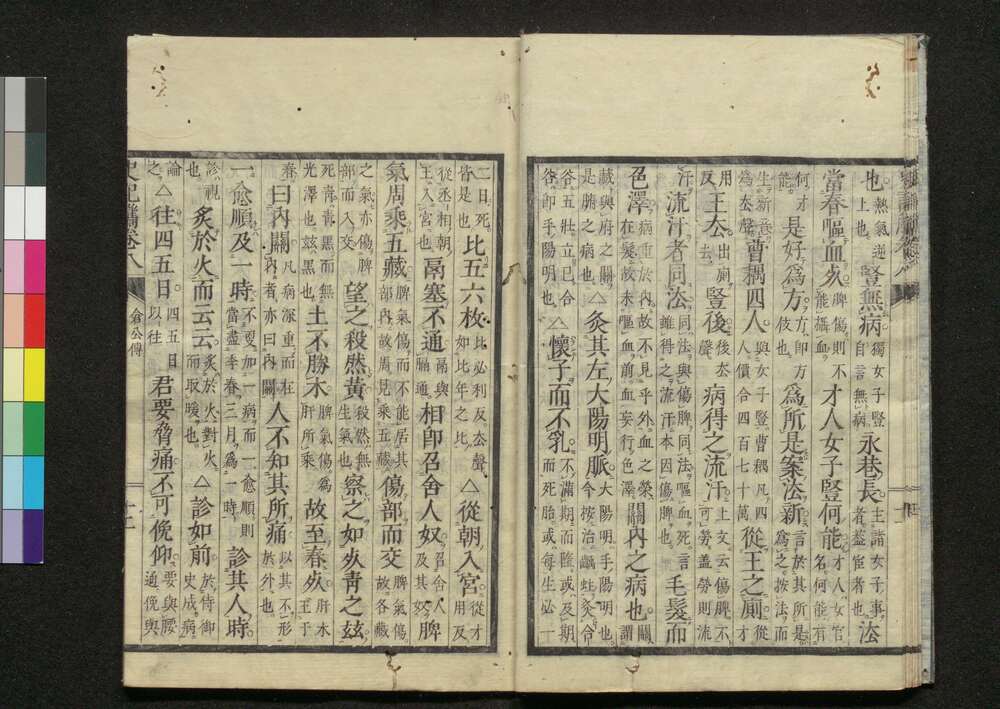 也。熱氣逆上也。豎無病獨女子豎自言無病永巷長主諸女子事者蓋宦者也。法
當春嘔血死。脾傷則不能攝血。才人女子豎何能才人女官名何能有
何才能。是好爲方。方即方伎也爲所是案法新言於其所是爲之按法而
生新意爲去聲曹耦四人。與女子豎曹耦凡四人價合四百七十萬從王之廁從才
用反王去出廁去聲豎後後去也病得之流汗。上文云傷脾不可勞蓋勞則流
汗。流汗者同法。同法與傷脾同法嘔血死言雖得之流汗本因傷脾也。毛髮而
色澤。病重於內故不見乎外血之榮在髮故未嘔血前血妄行色澤關內之病也。關謂
藏與府之關是腑之病也。△灸其左大陽明脈大陽明手陽明也今按治齲蛀灸合
谷五壯立已合谷即手陽明也△懷子而不乳不滿期而或及期而死胎或每生必一
二日死皆是也比五六枚比必利反去聲如比年之比△從朝入宮從才用反
從丞相朝王入宮也鬲塞不通鬲與膈通相即召舍人奴召舍人及其奴脾
氣周乘五藏脾氣傷而不能居其部內故周見乘五藏傷部而交脾氣傷故各藏
之氣亦傷脾部而入交望之殺然黃殺然無生氣也察之如死靑之茲
死靑靑黑而無光澤也茲黑也土不勝木脾氣傷爲肝所乘故至春死肝木王于
春曰內關凡病深重而在內者亦曰內關人不知其所痛以其不形於外也
一愈順及一時不更加一病而一愈順則當盡季春三月爲一時診其人時
診視也炙於火而云云炙於火對火而取暖也△診如前於侍御史成病
論之△往四五日四五日以往君要脅痛不可俛仰要與腰通俛與
倉公傳